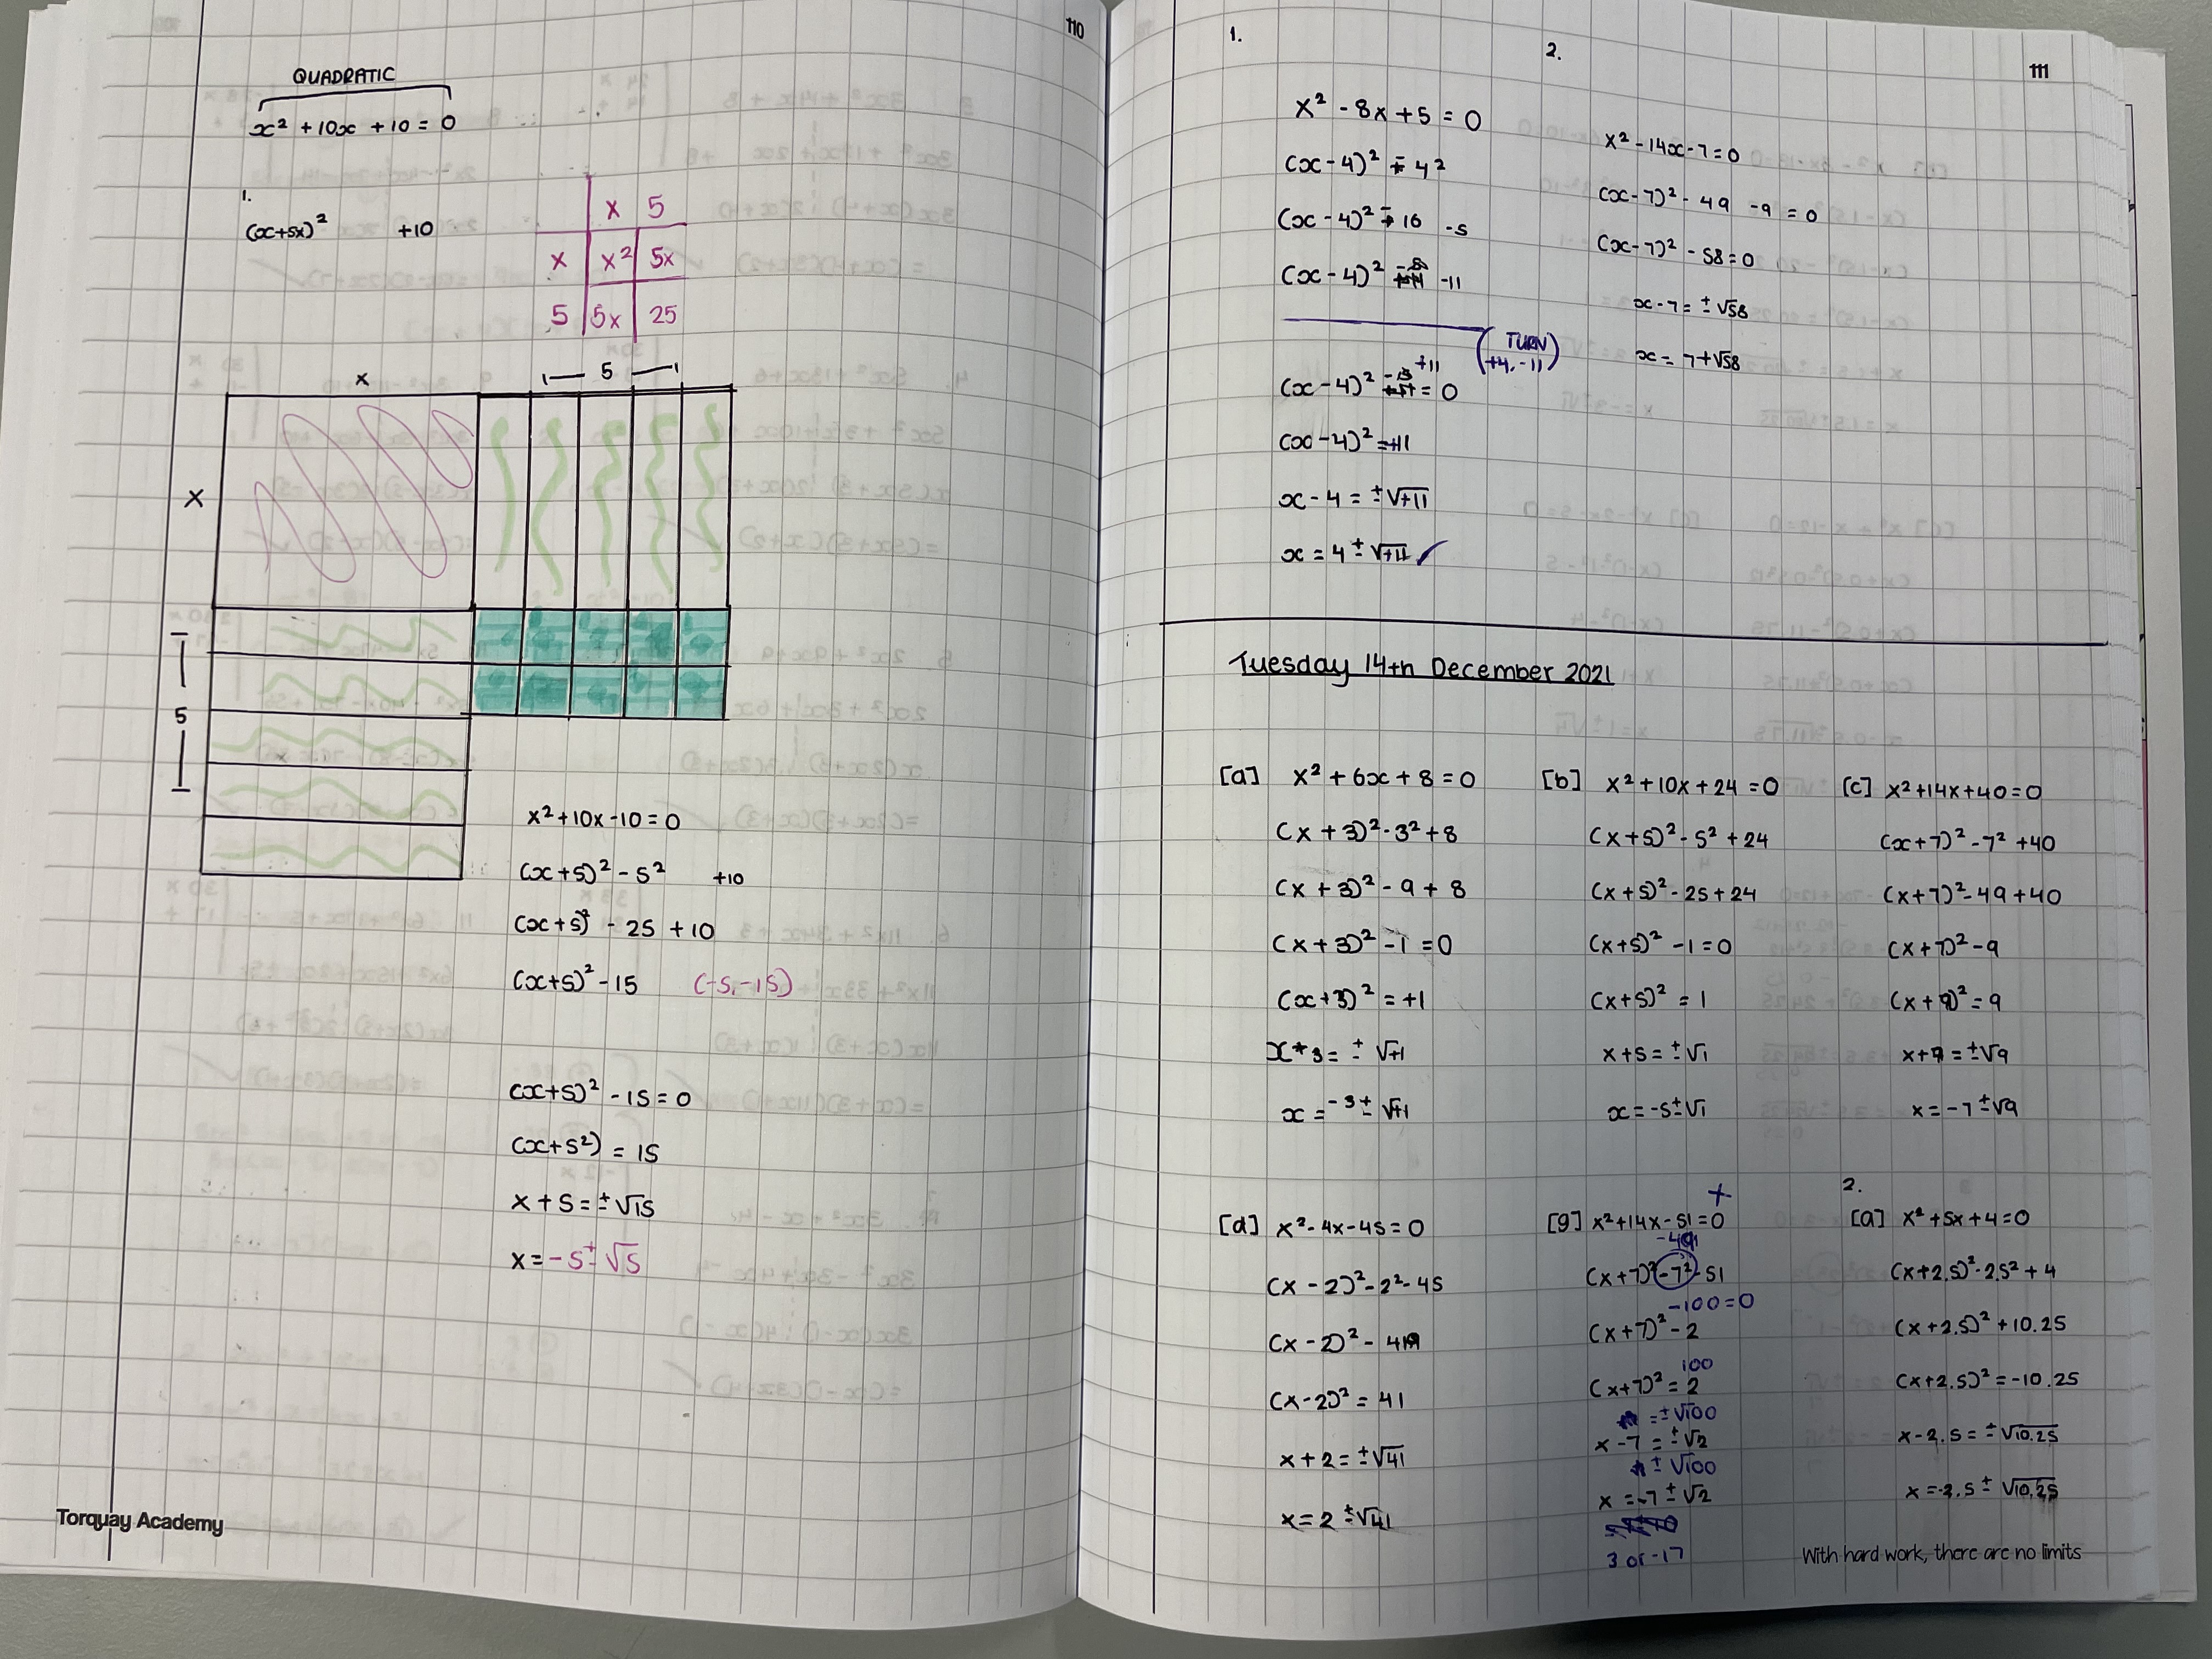 110
QUADRATIC
x² + 10x + 10 = 0
1.
(x+5x)² +10
x 5
x x² 5x
5 5x 25
x
5
x
5
x² + 10x - 10 = 0
(x+5)² - 5² +10
(x+5)² - 25 + 10
(x+5)² - 15 (-5,-15)
(x+5)² - 15 = 0
(x+5²) = 15
x + 5 = ±√15
x = -5 ± √5
Torquay Academy
111
1.
x² - 8x + 5 = 0
(x-4)² - 4²
(x-4)² - 16 -5
(x-4)² -11
(TURN
+4, -11)
+11
(x-4)² = 0
(x-4)² = +11
x - 4 = ±√+11
x = 4 ± √+11 ✓
2.
x² - 14x - 7 = 0
(x-7)² - 49 - 9 = 0
(x-7)² - 58 = 0
x - 7 = ±√58
x = 7+√58
Tuesday 14th December 2021
[a] x² + 6x + 8 = 0
(x + 3)² - 3² + 8
(x + 3)² - 9 + 8
(x + 3)² - 1 = 0
(x+3)² = +1
x+3 = ± √+1
x = -3 ± √+1
[b] x² + 10x + 24 = 0
(x+5)² - 5² + 24
(x+5)² - 25 + 24
(x+5)² - 1 = 0
(x+5)² = 1
x+5 = ±√1
x = -5±√1
[c] x² + 14x + 40 = 0
(x+7)² - 7² + 40
(x+7)² - 49 + 40
(x+7)² - 9
(x+9)² = 9
x+7 = ±√9
x = -7 ±√9
[d] x² - 4x - 45 = 0
(x - 2)² - 2² - 45
(x - 2)² - 49
(x-2)² = 41
x + 2 = ±√41
x = 2 ±√41
+
[g] x² + 14x - 51 = 0
-49
(x+7)² - 7² - 51
-100 = 0
(x+7)² - 2
100
(x+7)² = 2
= ±√100
x - 7 = ±√2
± √100
x = -7 ± √2
3 or -17
2.
[a] x² + 5x + 4 = 0
(x+2.5)² - 2.5² + 4
(x+2.5)² + 10.25
(x+2.5)² = -10.25
x - 2.5 = ±√10.25
x = -2.5 ± √10.25
With hard work, there are no limits